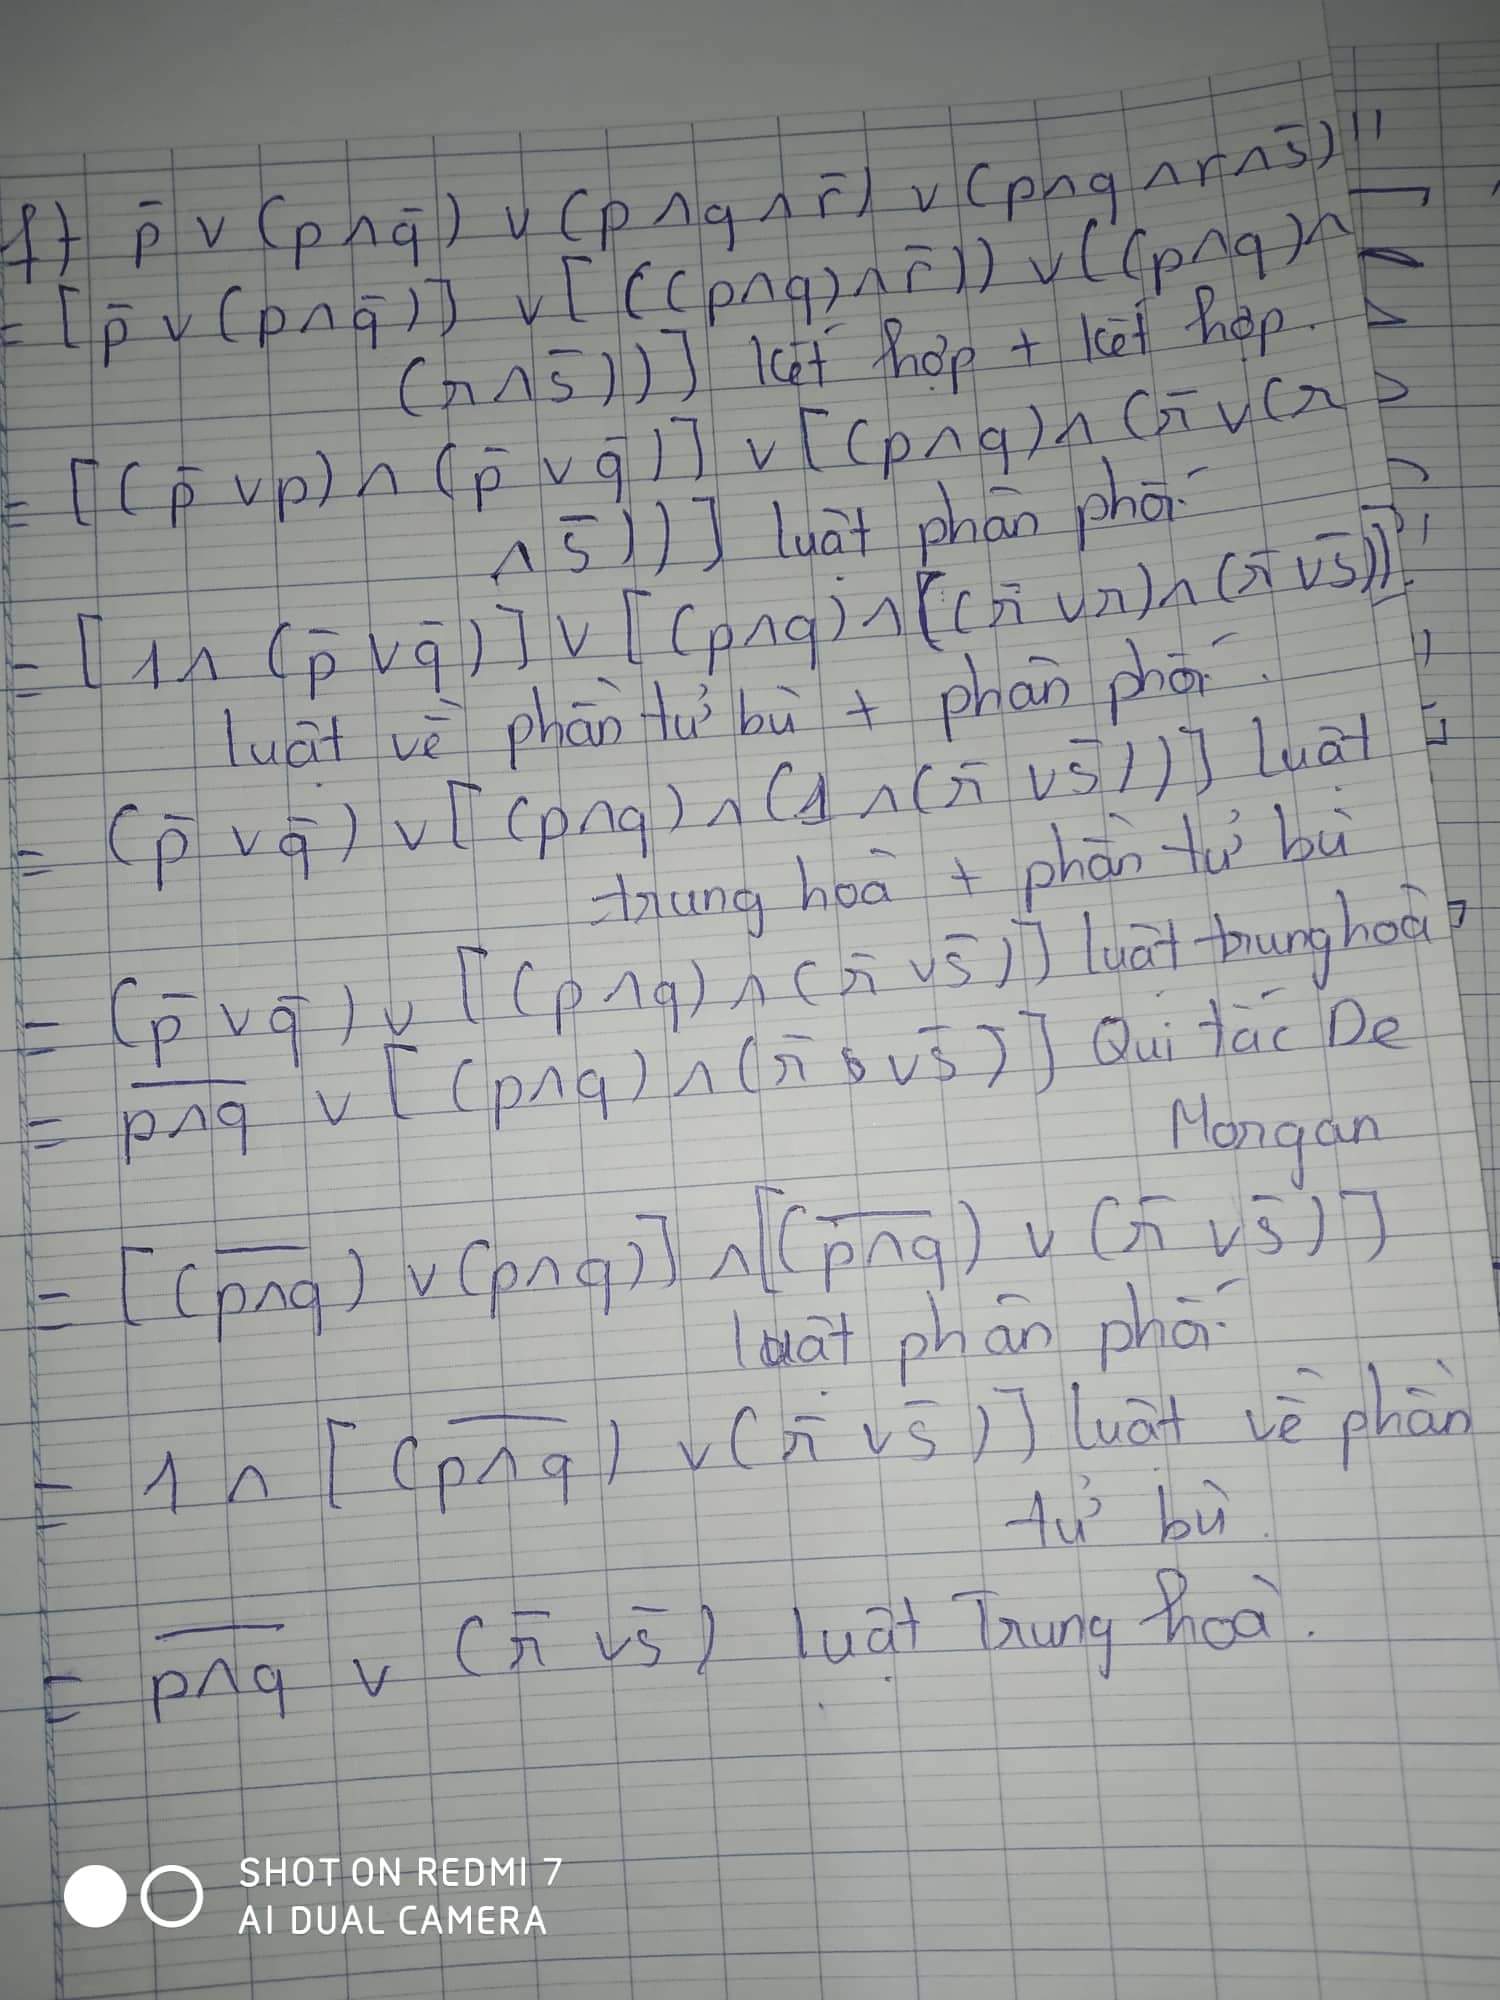 f) p̄ ∨ (p ∧ q̄) ∨ (p ∧ q ∧ r̄) ∨ (p ∧ q ∧ r ∧ s̄)
= [p̄ ∨ (p ∧ q̄)] ∨ [((p ∧ q) ∧ r̄)) ∨ ((p ∧ q) ∧
(r ∧ s̄))] kết hợp + kết hợp.
= [(p̄ ∨ p) ∧ (p̄ ∨ q̄)] ∨ [(p ∧ q) ∧ (r̄ ∨ (r
∧ s̄))] luật phân phối
= [1 ∧ (p̄ ∨ q̄)] ∨ [(p ∧ q) ∧ [(r̄ ∨ r) ∧ (r̄ ∨ s̄)]]
luật về phần tử bù + phân phối.
= (p̄ ∨ q̄) ∨ [(p ∧ q) ∧ (1 ∧ (r̄ ∨ s̄))] luật
trung hoà + phần tử bù
= (p̄ ∨ q̄) ∨ [(p ∧ q) ∧ (r̄ ∨ s̄)] luật trung hoà
= p̅∧̅q̅ ∨ [(p ∧ q) ∧ (r̄ ∨ s̄)] Qui tắc De
Morgan
= [(p̅∧̅q̅) ∨ (p ∧ q)] ∧ [(p̅∧̅q̅) ∨ (r̄ ∨ s̄)]
luật phân phối
= 1 ∧ [(p̅∧̅q̅) ∨ (r̄ ∨ s̄)] luật về phần
tử bù.
= p̅∧̅q̅ ∨ (r̄ ∨ s̄) luật Trung hoà.
SHOT ON REDMI 7
AI DUAL CAMERA